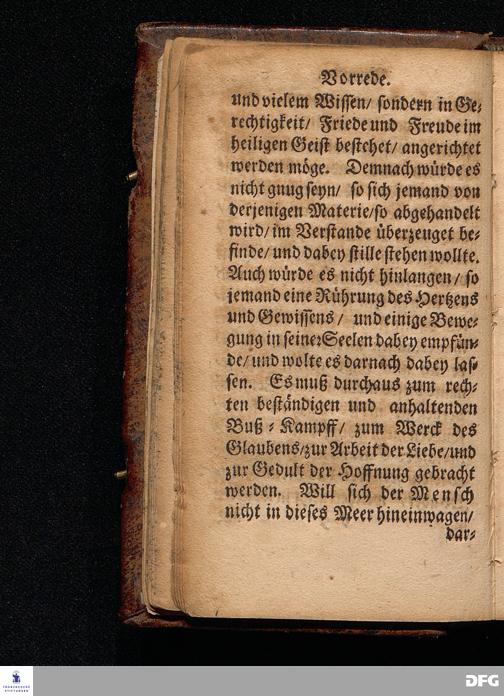 Vorrede.
und vielem Wissen/ sondern in Ge-
rechtigkeit/ Friede und Freude im
heiligen Geist bestehet/ angerichtet
werden möge. Demnach würde es
nicht gnug seyn/ so sich jemand von
derjenigen Materie/so abgehandelt
wird/im Verstande überzeuget be-
finde/ und dabey stille stehen wollte.
Auch würde es nicht hinlangen/ so
jemand eine Rührung des Hertzens
und Gewissens/ und einige Bewe-
gung in seiner Seelen dabey empfün-
de/ und wolte es darnach dabey las-
sen. Es muß durchaus zum rech-
ten beständigen und anhaltenden
Buß-Kampff/ zum Werck des
Glaubens/zur Arbeit der Liebe/und
zur Gedult der Hoffnung gebracht
werden. Will sich der Mensch
nicht in dieses Meer hineinwagen/
dar-
FRANCKESCHE
STIFTUNGEN
DFG